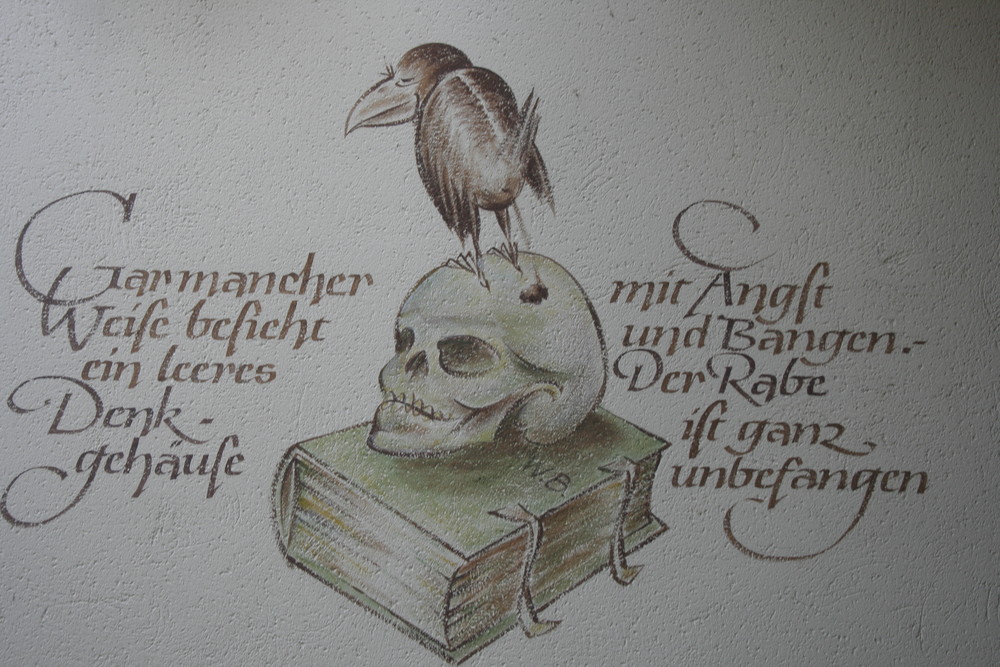 Gar mancher
Weiſe beſieht
ein leeres
Denk-
gehäuſe
mit Angſt
und Bangen.-
Der Rabe
iſt ganz
unbefangen
W.B